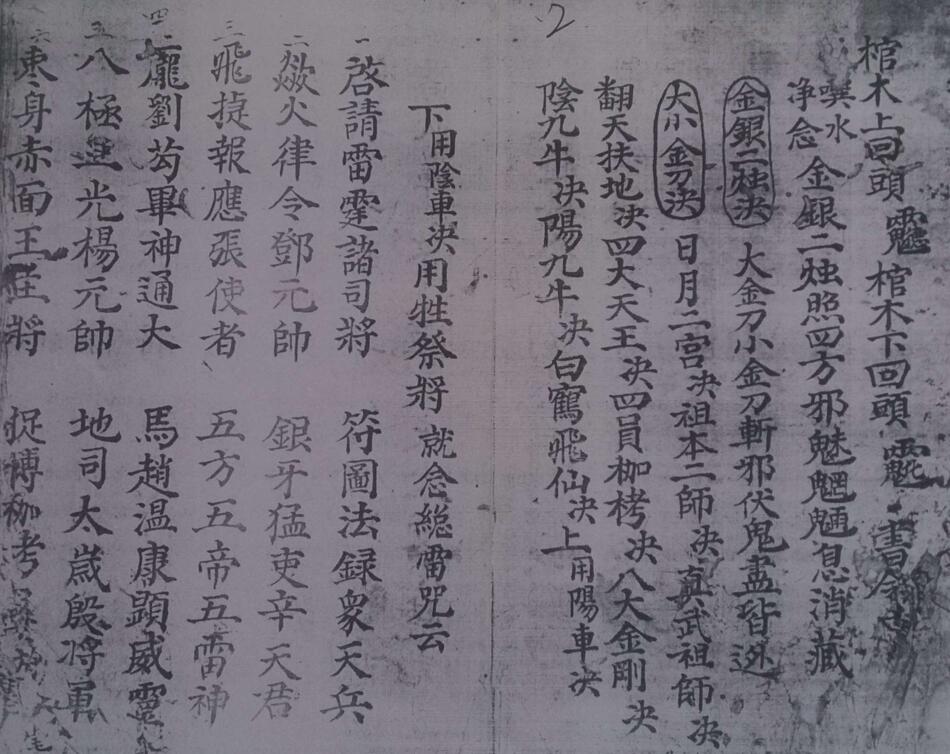 2
棺木上回頭 棺木下回頭
噀水
净念 金銀二烛照四方邪魅魍魎息消藏
金銀二烛決 大金刀小金刀斬邪伏鬼盡皆
大小金刀決 日月二宮決祖本二師決真武祖師決
翻天扶地決四大天王決四員枷栲決八大金剛決
陰九牛決陽九牛決白鶴飛仙決上用陽車決
下用陰車決用牲祭將就念総雷咒云
一 啓請雷霆諸司將 符圖法録衆天兵
二 焱火律令鄧元帥 銀牙猛吏辛天君
三 飛捷報應張使者 五方五帝五雷神
四 龐劉苟畢神通大 馬趙温康顯威靈
五 八極 光楊元帥 地司太歲殷將軍
六 枣身赤面王 將 捉縛枷考